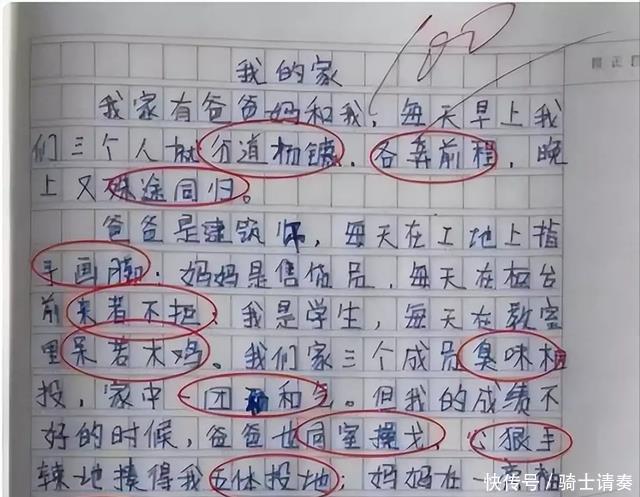 100
我的家
我家有爸爸妈和我,每天早上我
们三个人就分道杨镳,各奔前程,晚
上又殊途同归。
爸爸是建筑师,每天在工地上指
手画脚;妈妈是售货员,每天在柜台
前来者不拒;我是学生,每天在教室
里呆若木鸡。我们家三个成员臭味相
投,家中一团和气。但我的成绩不
好的时候,爸爸也同室操戈,心狠手
辣地揍得我五体投地;妈妈在一旁
快传号/骑士请奏